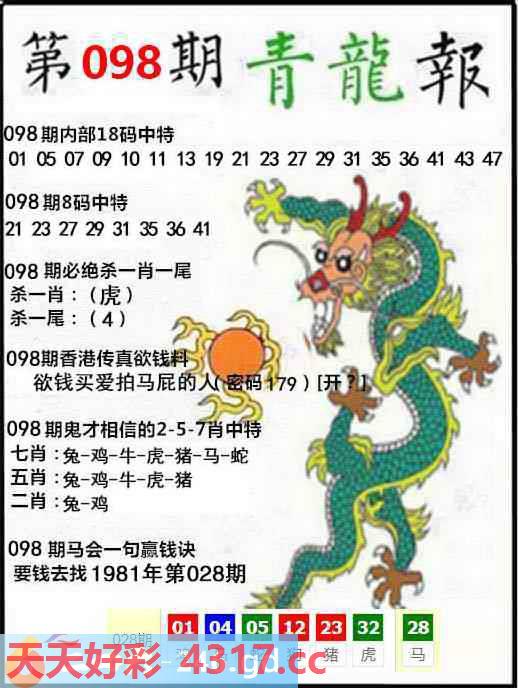 第098期青龍報
098期内部18码中特
01 05 07 09 10 11 13 19 21 23 27 29 31 35 36 41 43 47
098期8码中特
21 23 27 29 31 35 36 41
098 期必绝杀一肖一尾
杀一肖：（虎）
杀一尾：（4）
098期香港传真欲钱料
欲钱买爱拍马屁的人(密码179) [开？]
098期鬼才相信的2-5-7肖中特
七肖：兔-鸡-牛-虎-猪-马-蛇
五肖：兔-鸡-牛-虎-猪
二肖：兔-鸡
098 期马会一句赢钱诀
要钱去找1981年第028期
028期 01 04 05 12 23 32 28
狗 猪 虎 马
天天好彩 4317.cc